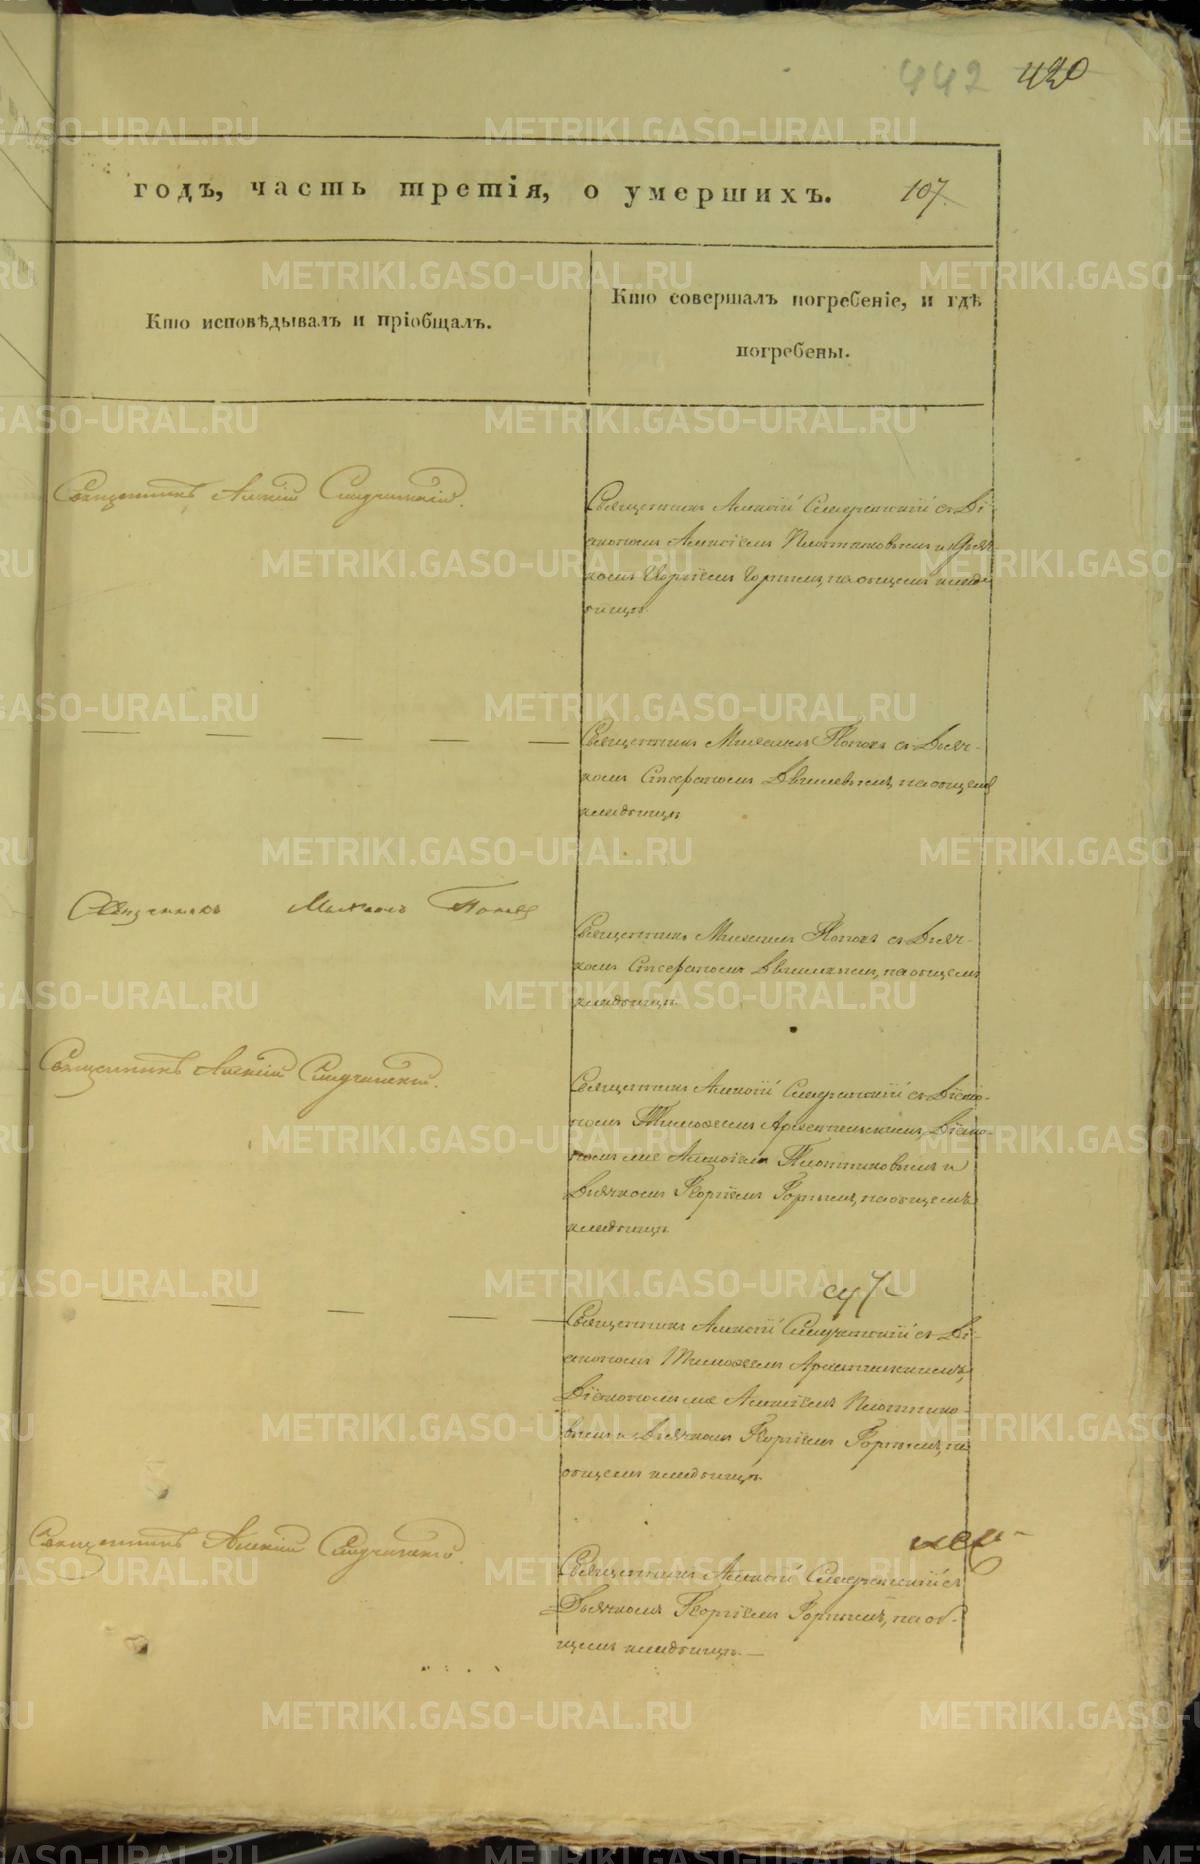 442 420
годъ, часть третія, о умершихъ. 107
Кто исповѣдывалъ и пріобщалъ.
Кто совершалъ погребеніе, и гдѣ
погребены.
Священникъ Алексій
Священникъ Алексій съ Ді-
акономъ Алексіемъ Плотниковымъ и Дьяч-
комъ Георгіемъ Горнымъ, на общемъ клад-
бищѣ.
Священникъ Михаилъ Поповъ съ Дьяч-
комъ Стефаномъ на общемъ
кладбищѣ
Священникъ Михаилъ Поповъ
Священникъ Михаилъ Поповъ съ Дьяч-
комъ Стефаномъ на общемъ
кладбищѣ.
Священникъ Алексій
Священникъ Алексій съ Діако-
номъ Тимофеемъ Діако-
номъ же Алексіемъ Плотниковымъ и
Дьячкомъ Георгіемъ Горнымъ, на общемъ
кладбищѣ
Священникъ Алексій съ Ді-
акономъ Тимофеемъ
Діакономъ же Алексіемъ Плотнико-
вымъ и Дьячкомъ Георгіемъ Горнымъ, на
общемъ кладбищѣ.
Священникъ Алексій
Священникъ Алексій съ
Дьячкомъ Георгіемъ Горнымъ, на об-
щемъ кладбищѣ. —
METRIKI.GASO-URAL.RU